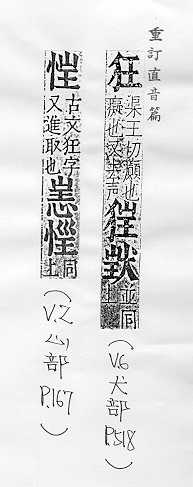 重訂直音篇
狂 渠王切顛也癡也又去声 並同上
(V.6 犬部 P.518)
古文狂字又進取也 同上
(V.2 心部 P.167)